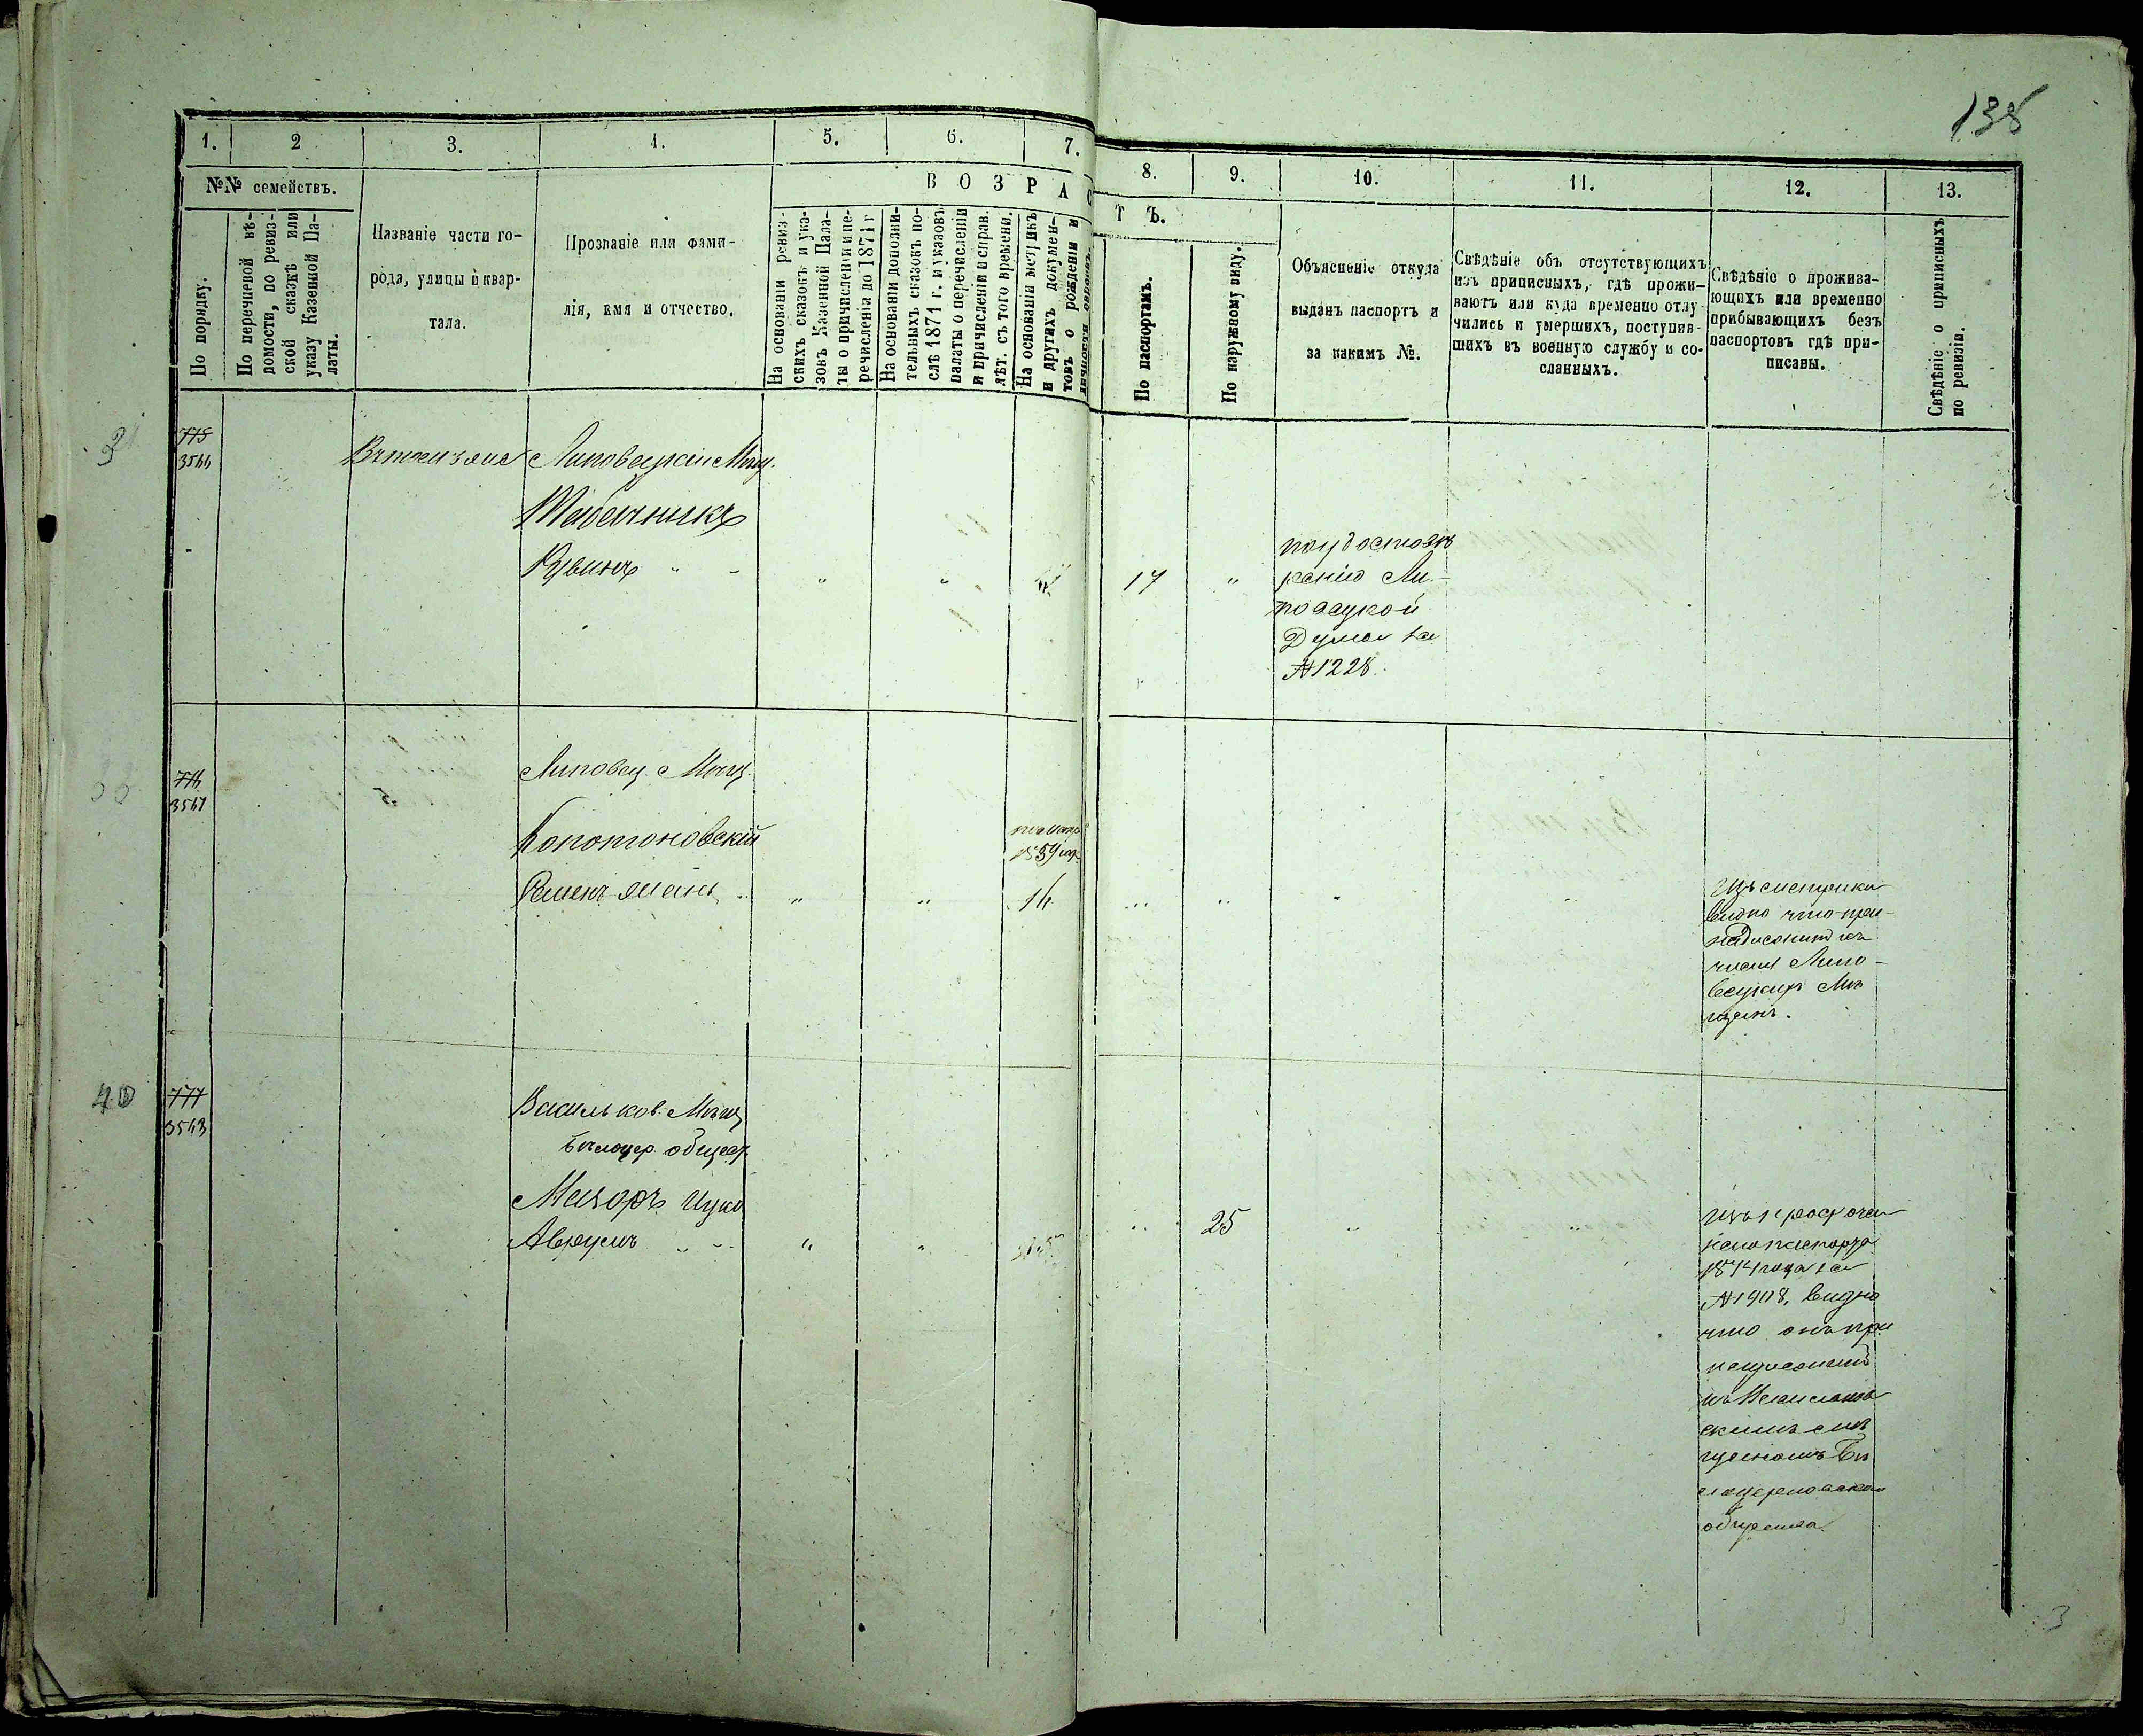 138
1.
2
3.
4.
5.
6.
7.
8.
9.
10.
11.
12.
13.
№№ семействъ.
В О З Р А С
Т Ъ.
По порядку.
По перечневой вѣ-
домости, по ревиз-
ской сказкѣ или
указу Казенной Па-
латы.
Названіе части го-
рода, улицы и квар-
тала.
Прозваніе или фами-
лія, имя и отчество.
На основаніи ревиз-
скихъ сказокъ и ука-
зовъ Казенной Пала-
ты о причисленіи и пе-
речисленіи до 1871 г
На основаніи дополни-
тельныхъ сказокъ по-
слѣ 1871 г. и указовъ
палаты о перечисленіи
и причисленіи и справ.
лѣт. съ того времени.
На основаніи метрикъ
и другихъ докумен-
товъ о рожденіи и
личности евреевъ.
По паспортамъ.
По наружному виду.
Объясненіе откуда
выданъ паспортъ и
за какимъ №.
Свѣдѣніе объ отсутствующихъ
изъ приписныхъ, гдѣ прожи-
ваютъ или куда временно отлу
чились и умершихъ, поступив-
шихъ въ военную службу и со-
сланныхъ.
Свѣдѣніе о прожива-
ющихъ или временно
прибывающихъ безъ
паспортовъ гдѣ при-
писаны.
Свѣдѣніе о приписныхъ
по ревизіи.
775
Липовецкій Мѣщ.
Табачникъ
17
по удостовѣ
ренію Ли-
повецкой
Думы за
№ 1228.
Липовец. Мѣщ.
Копотоновскій
16
Изъ метрики
видно что при-
надлежитъ къ
числу Липо-
вецкихъ Мѣ
щанъ.
40
777
3563
Васильков. Мѣщ
Бѣлоцер. общест
Мазоръ Ицко
Аврумъ
25
Изъ просрочен
наго паспорта
1874 года за
№ 1908, видно
что онъ при
надлежитъ
къ Васильков
скимъ мѣ
щанамъ Бѣ
лоцерковскаго
общества.